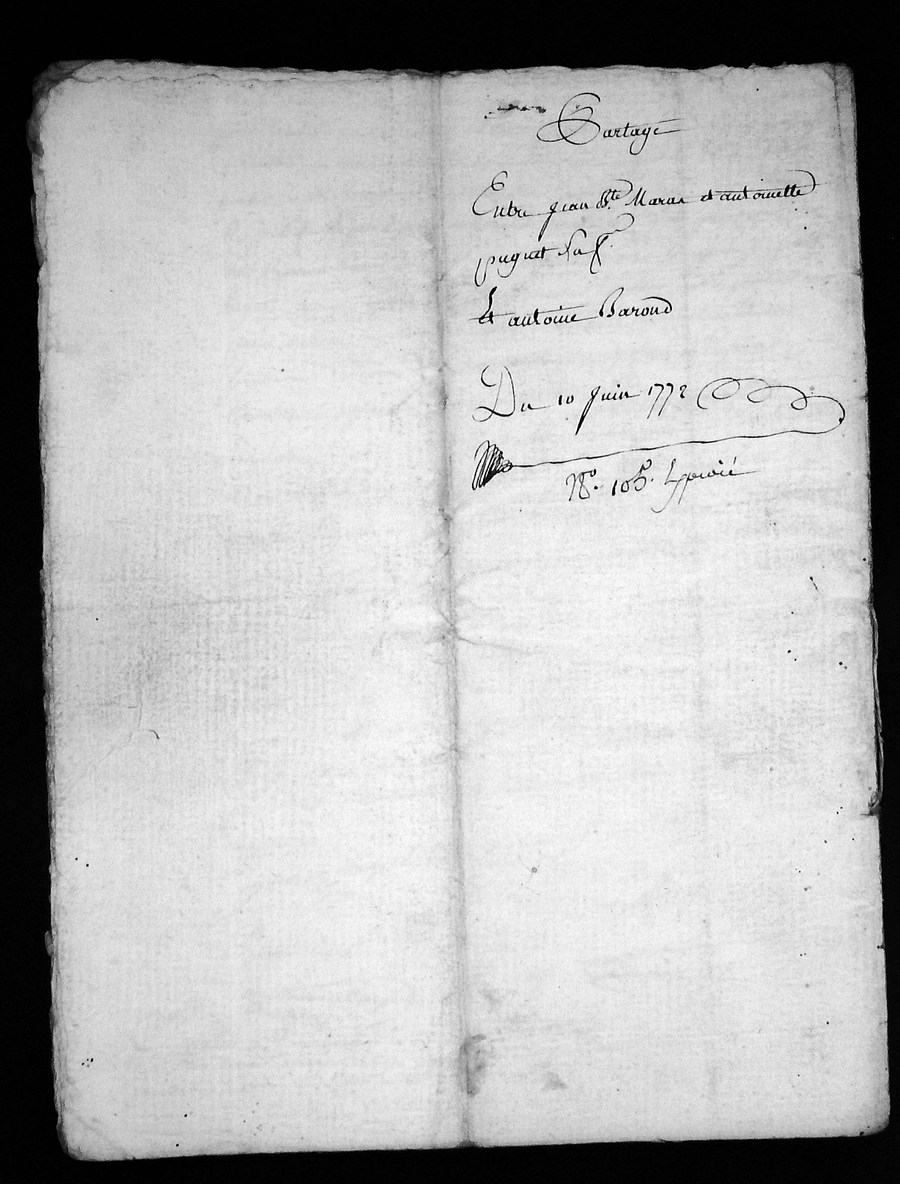 Partage
Entre Jean Bte. Maras et antoinette
puguet sa f.
Et antoine Barond
Du 10 Juin 1772
No. 105.